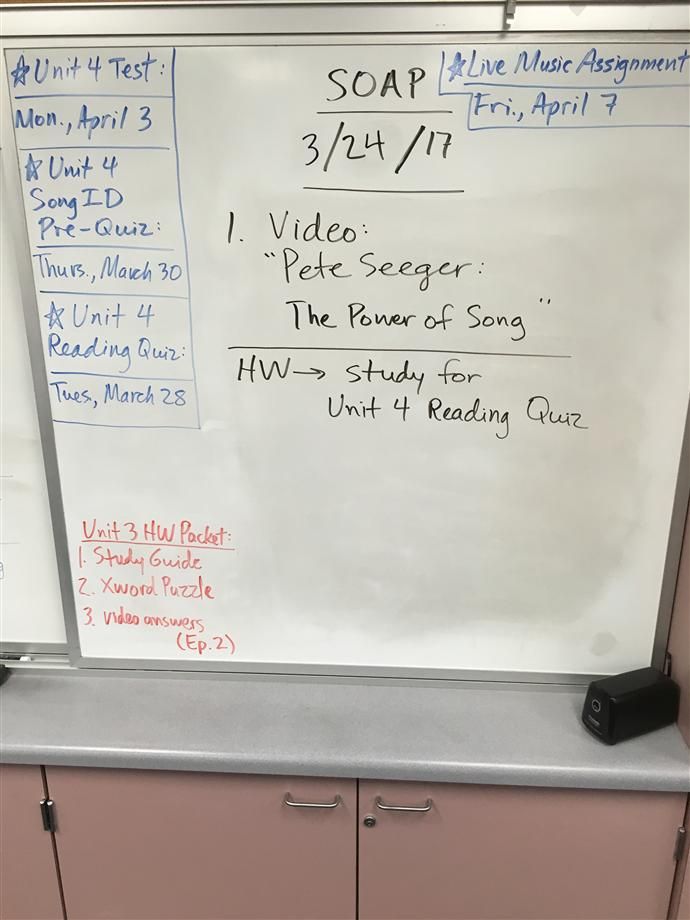 ☆Unit 4 Test:
Mon., April 3
☆Unit 4
Song ID
Pre-Quiz:
Thurs., March 30
☆Unit 4
Reading Quiz:
Tues., March 28
SOAP
3/24/17
☆Live Music Assignment
Fri., April 7
1. Video:
"Pete Seeger:
The Power of Song"
HW→ study for
Unit 4 Reading Quiz
Unit 3 HW Packet:
1. Study Guide
2. Xword Puzzle
3. video answers
(Ep.2)